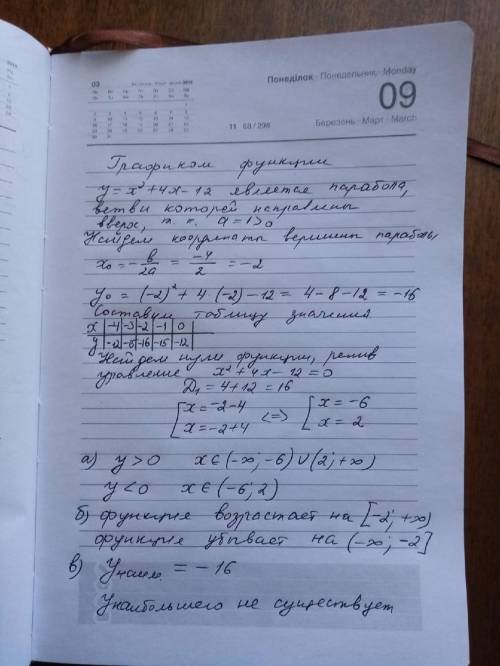 03
2019
Понеділок · Понедельник · Monday
09
11 68/298
Березень · Март · March
Графиком функции
y = x² + 4x - 12 является парабола,
ветви которой направлены
вверх, т. к. a = 1 > 0
Найдем координаты вершины параболы
x₀ = -в/2a = -4/2 = -2
y₀ = (-2)² + 4·(-2) - 12 = 4 - 8 - 12 = -16
Составим таблицу значения
x | -4 | -3 | -2 | -1 | 0
y | -12 | -15 | -16 | -15 | -12
Найдем нули функции, решив
уравнение x² + 4x - 12 = 0
D₁ = 4 + 12 = 16
[ x = -2-4 <=> [ x = -6
x = -2+4 x = 2
а) y > 0 x ∈ (-∞; -6) ∪ (2; +∞)
y < 0 x ∈ (-6; 2)
б) функция возрастает на [-2; +∞)
функция убывает на (-∞; -2]
в) Yнаим. = -16
Yнаибольшего не существует